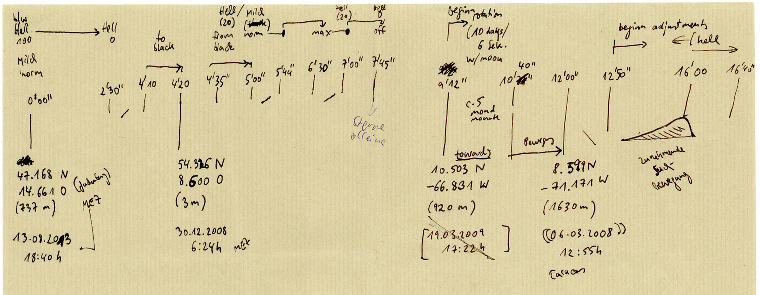 Hell
100
Hell
0
Mild
norm
to
black
Hell/
(20)
from
black
Mild
norm
max
Hell
(20)
off
begin
rotation
(10 days/
6 Sek.
w/moon
begin adjustments
(hell
0'00"
2'30"
4'10
4'20
4'35"
5'00"
5'44"
6'30"
7'00"
7'45"
9'12"
40"
12'00"
12'50"
16'00
16'40"
Sterne
alleine
c.5
mond
monate
towards
Bewegg
zunehmende
bewegung
47.168 N
14.661 O
(737 m)
MEZ
13.09.2013
18:40h
8.600 O
(3m)
30.12.2008
6:24h MEZ
10.503 N
-66.831 W
(920 m)
[19.03.2009
17:22h]
8.599 N
-71.171 W
(1630m)
((06.03.2008))
12:55h
Caracas